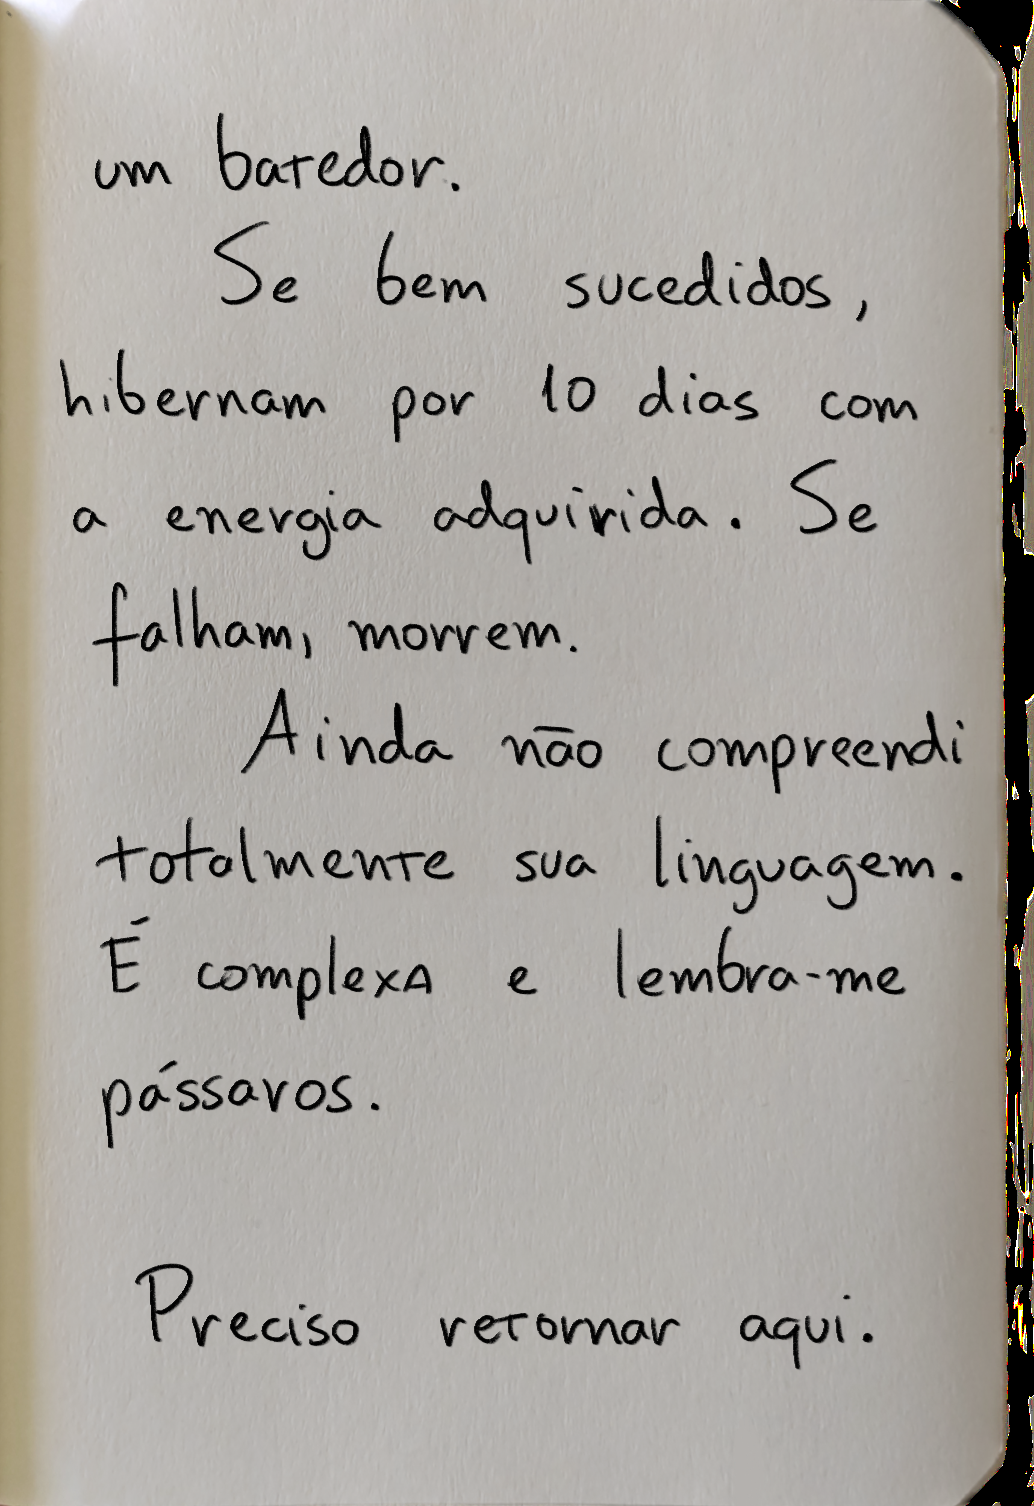 um batedor.
Se bem sucedidos,
hibernam por 10 dias com
a energia adquirida. Se
falham, morrem.
Ainda não compreendi
totalmente sua linguagem.
É complexa e lembra-me
pássaros.
Preciso retornar aqui.